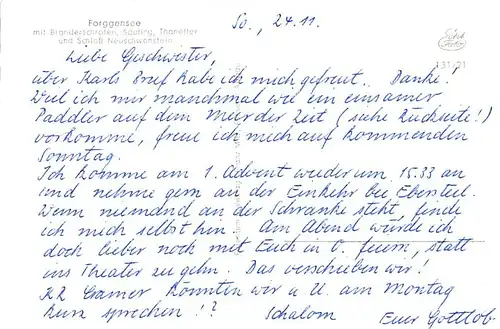 Forggensee
mit Branderschrofen, Säuling, Thaneller
und Schloß Neuschwanstein
So., 24.11.
131/21
Liebe Geschwister,
über Karls Brief habe ich mich gefreut. Danke!
Weil ich mir manchmal wie ein einsamer
Paddler auf dem Meer der Zeit (siehe Rückseite!)
vorkomme, freue ich mich auf kommenden
Sonntag.
Ich komme am 1. Advent wiederum 15.33 an
und nehme gern an der Einkehr bei Ebersteil.
Wenn niemand an der Schranke steht, finde
ich mich selbst hin. Am Abend würde ich
doch lieber noch mit Euch in O. feiern, statt
ins Theater zu gehn. Das verschieben wir!
KR Cramer könnten wir u. U. am Montag
kurz sprechen!?
Schalom Euer Gottlob.